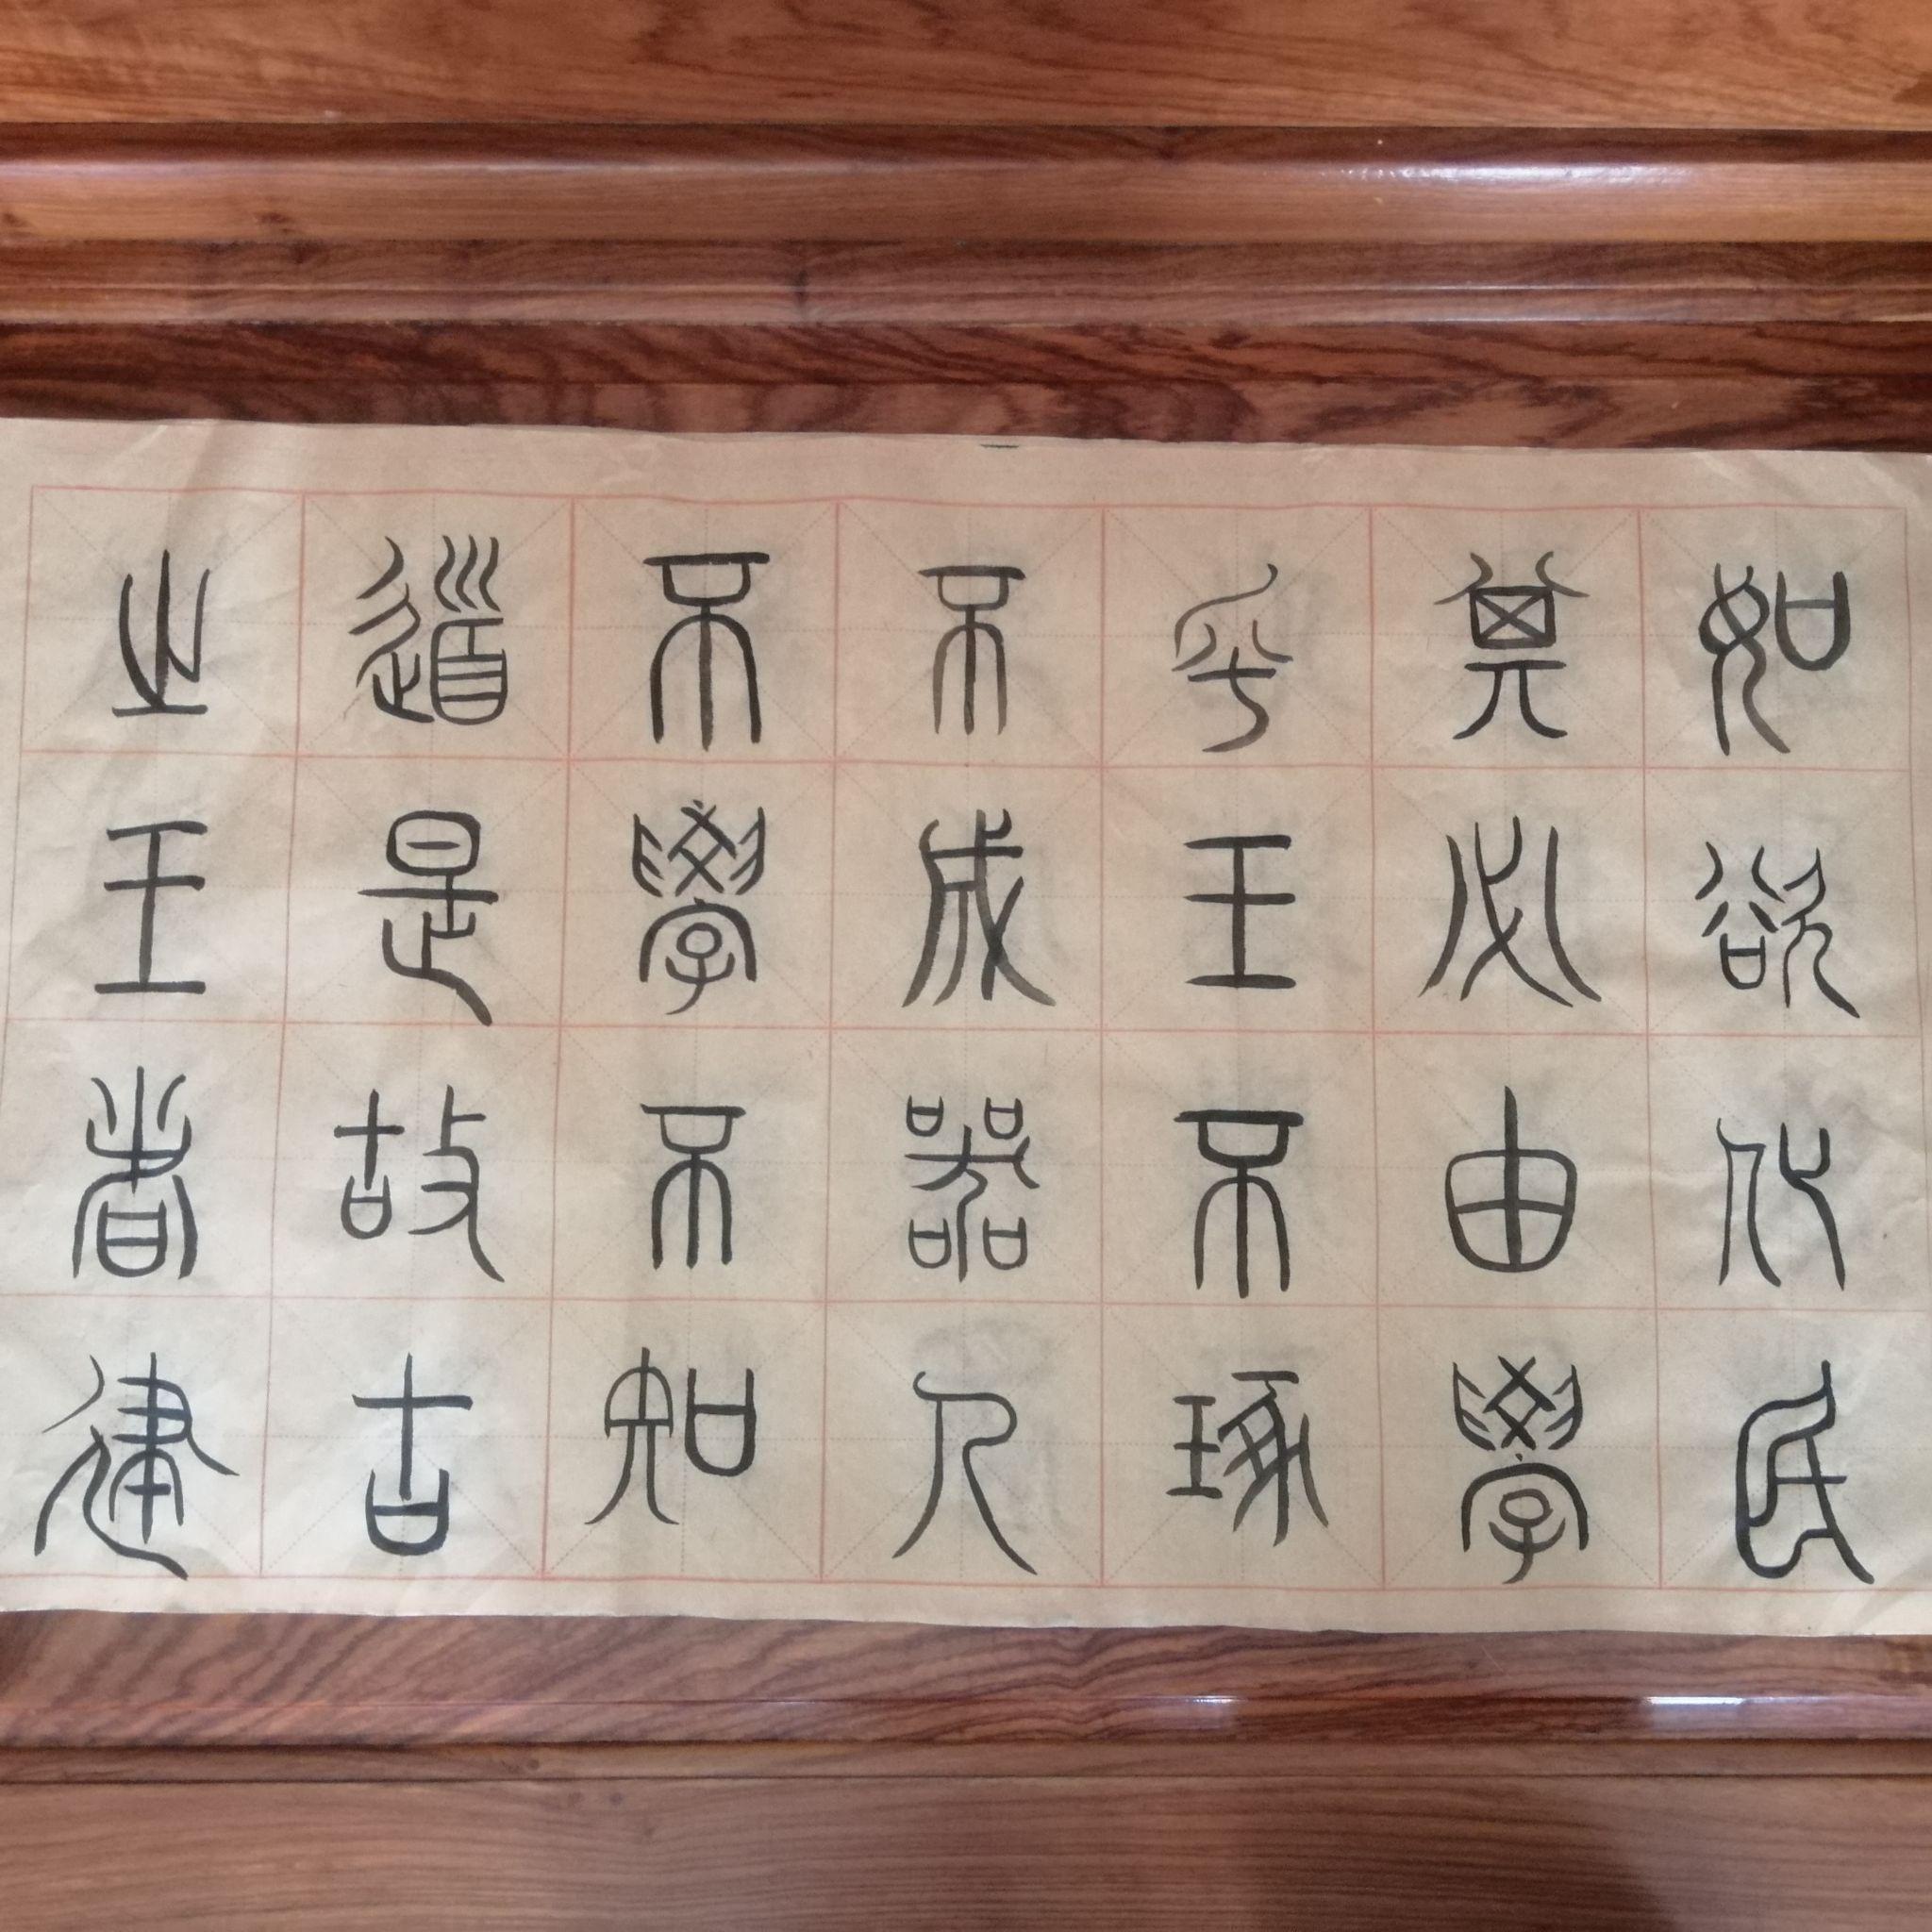 如欲化民
其必由學
乎玉不琢
不成器人
不學不知
道是故古
之王者建